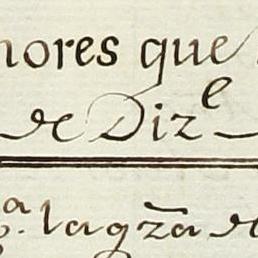 nores que
de Diz^e
^a. la gza de